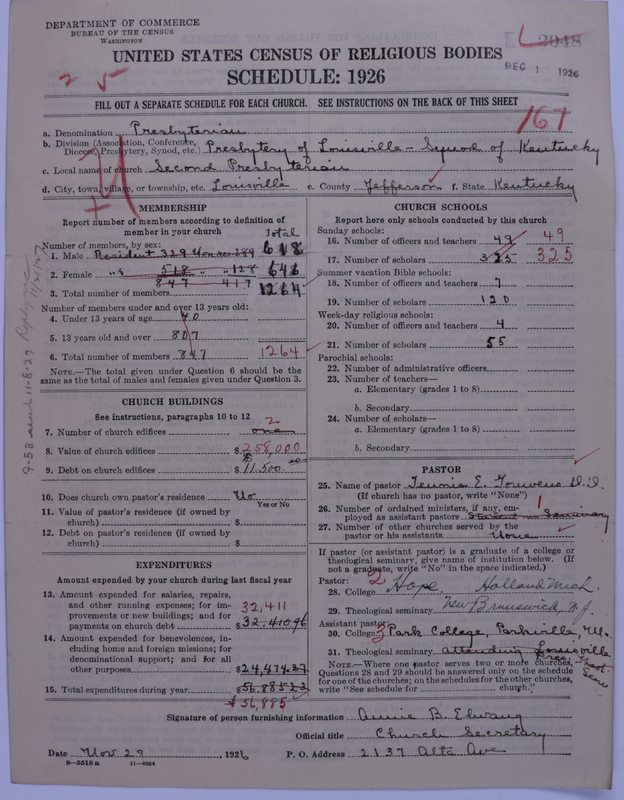 DEPARTMENT OF COMMERCE
BUREAU OF THE CENSUS
WASHINGTON
2048
DEC 1 1926
UNITED STATES CENSUS OF RELIGIOUS BODIES
SCHEDULE: 1926
2 5
FILL OUT A SEPARATE SCHEDULE FOR EACH CHURCH. SEE INSTRUCTIONS ON THE BACK OF THIS SHEET
167
a. Denomination Presbyterian
b. Division (Association, Conference, Diocese, Presbytery, Synod, etc.) Presbytery of Louisville - Synod of Kentucky
c. Local name of church Second Presbyterian
d. City, town, village, or township, etc. Louisville e. County Jefferson f. State Kentucky
MEMBERSHIP
Report number of members according to definition of member in your church
Total
Number of members, by sex:
1. Male Resident 329 Non res 289 618
2. Female " 518 " 128 646
847 417
3. Total number of members 1264
Number of members under and over 13 years old:
4. Under 13 years of age 40
5. 13 years old and over 807
6. Total number of members 847 1264
NOTE.—The total given under Question 6 should be the same as the total of males and females given under Question 3.
CHURCH BUILDINGS
See instructions, paragraphs 10 to 12
2
7. Number of church edifices one
8. Value of church edifices $258,000
9. Debt on church edifices $11,500
10. Does church own pastor's residence No
Yes or No
11. Value of pastor's residence (if owned by church) $
12. Debt on pastor's residence (if owned by church) $
EXPENDITURES
Amount expended by your church during last fiscal year
13. Amount expended for salaries, repairs, and other running expenses; for improvements or new buildings; and for payments on church debt 32,411 $32,410.96
14. Amount expended for benevolences, including home and foreign missions; for denominational support; and for all other purposes $24,474.27
15. Total expenditures during year $56,885.23
$56,885
CHURCH SCHOOLS
Report here only schools conducted by this church
Sunday schools:
16. Number of officers and teachers 49 49
17. Number of scholars 325 325
Summer vacation Bible schools:
18. Number of officers and teachers 7
19. Number of scholars 120
Week-day religious schools:
20. Number of officers and teachers 4
21. Number of scholars 55
Parochial schools:
22. Number of administrative officers
23. Number of teachers—
a. Elementary (grades 1 to 8)
b. Secondary
24. Number of scholars—
a. Elementary (grades 1 to 8)
b. Secondary
PASTOR
25. Name of pastor Teunis E. Gouwens D.D.
(If church has no pastor, write "None")
26. Number of ordained ministers, if any, employed as assistant pastors 1 Student in Seminary
27. Number of other churches served by the pastor or his assistants None
If pastor (or assistant pastor) is a graduate of a college or theological seminary, give name of institution below. (If not a graduate, write "No" in the space indicated.)
Pastor: 2
28. College Hope, Holland Mich.
29. Theological seminary New Brunswick, N.J.
Assistant pastor:
30. College 3 Park College, Parkville, Mo.
31. Theological seminary attending Louisville Pres. Theol. Sem
NOTE.—Where one pastor serves two or more churches, Questions 28 and 29 should be answered only on the schedule for one of the churches; on the schedules for the other churches, write "See schedule for church."
Signature of person furnishing information Annie B. Elwang
Official title Church Secretary
Date Nov 29, 1926 P. O. Address 2137 Alta Ave
8—5518a 11—9064